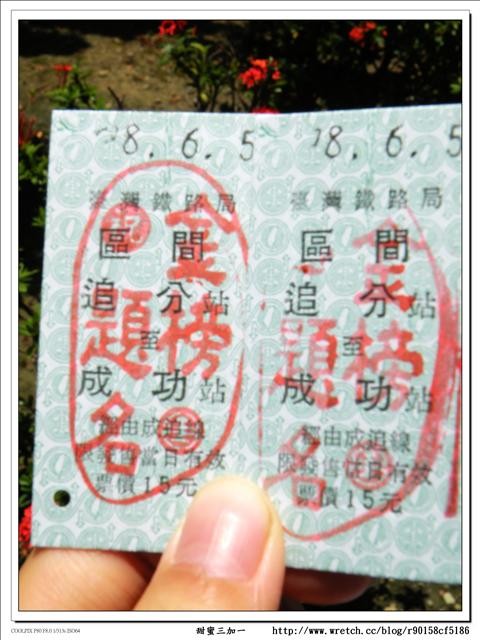 8. 6. 5
臺灣鐵路局
區間
追分站
至
成功站
經由成追線
限發售當日有效
票價15元
金榜
題名
8. 6. 5
臺灣鐵路局
區間
追分站
至
成功站
經由成追線
限發售當日有效
票價15元
金榜
題名
甜蜜三加一
http://www.wretch.cc/blog/r90158cf5186